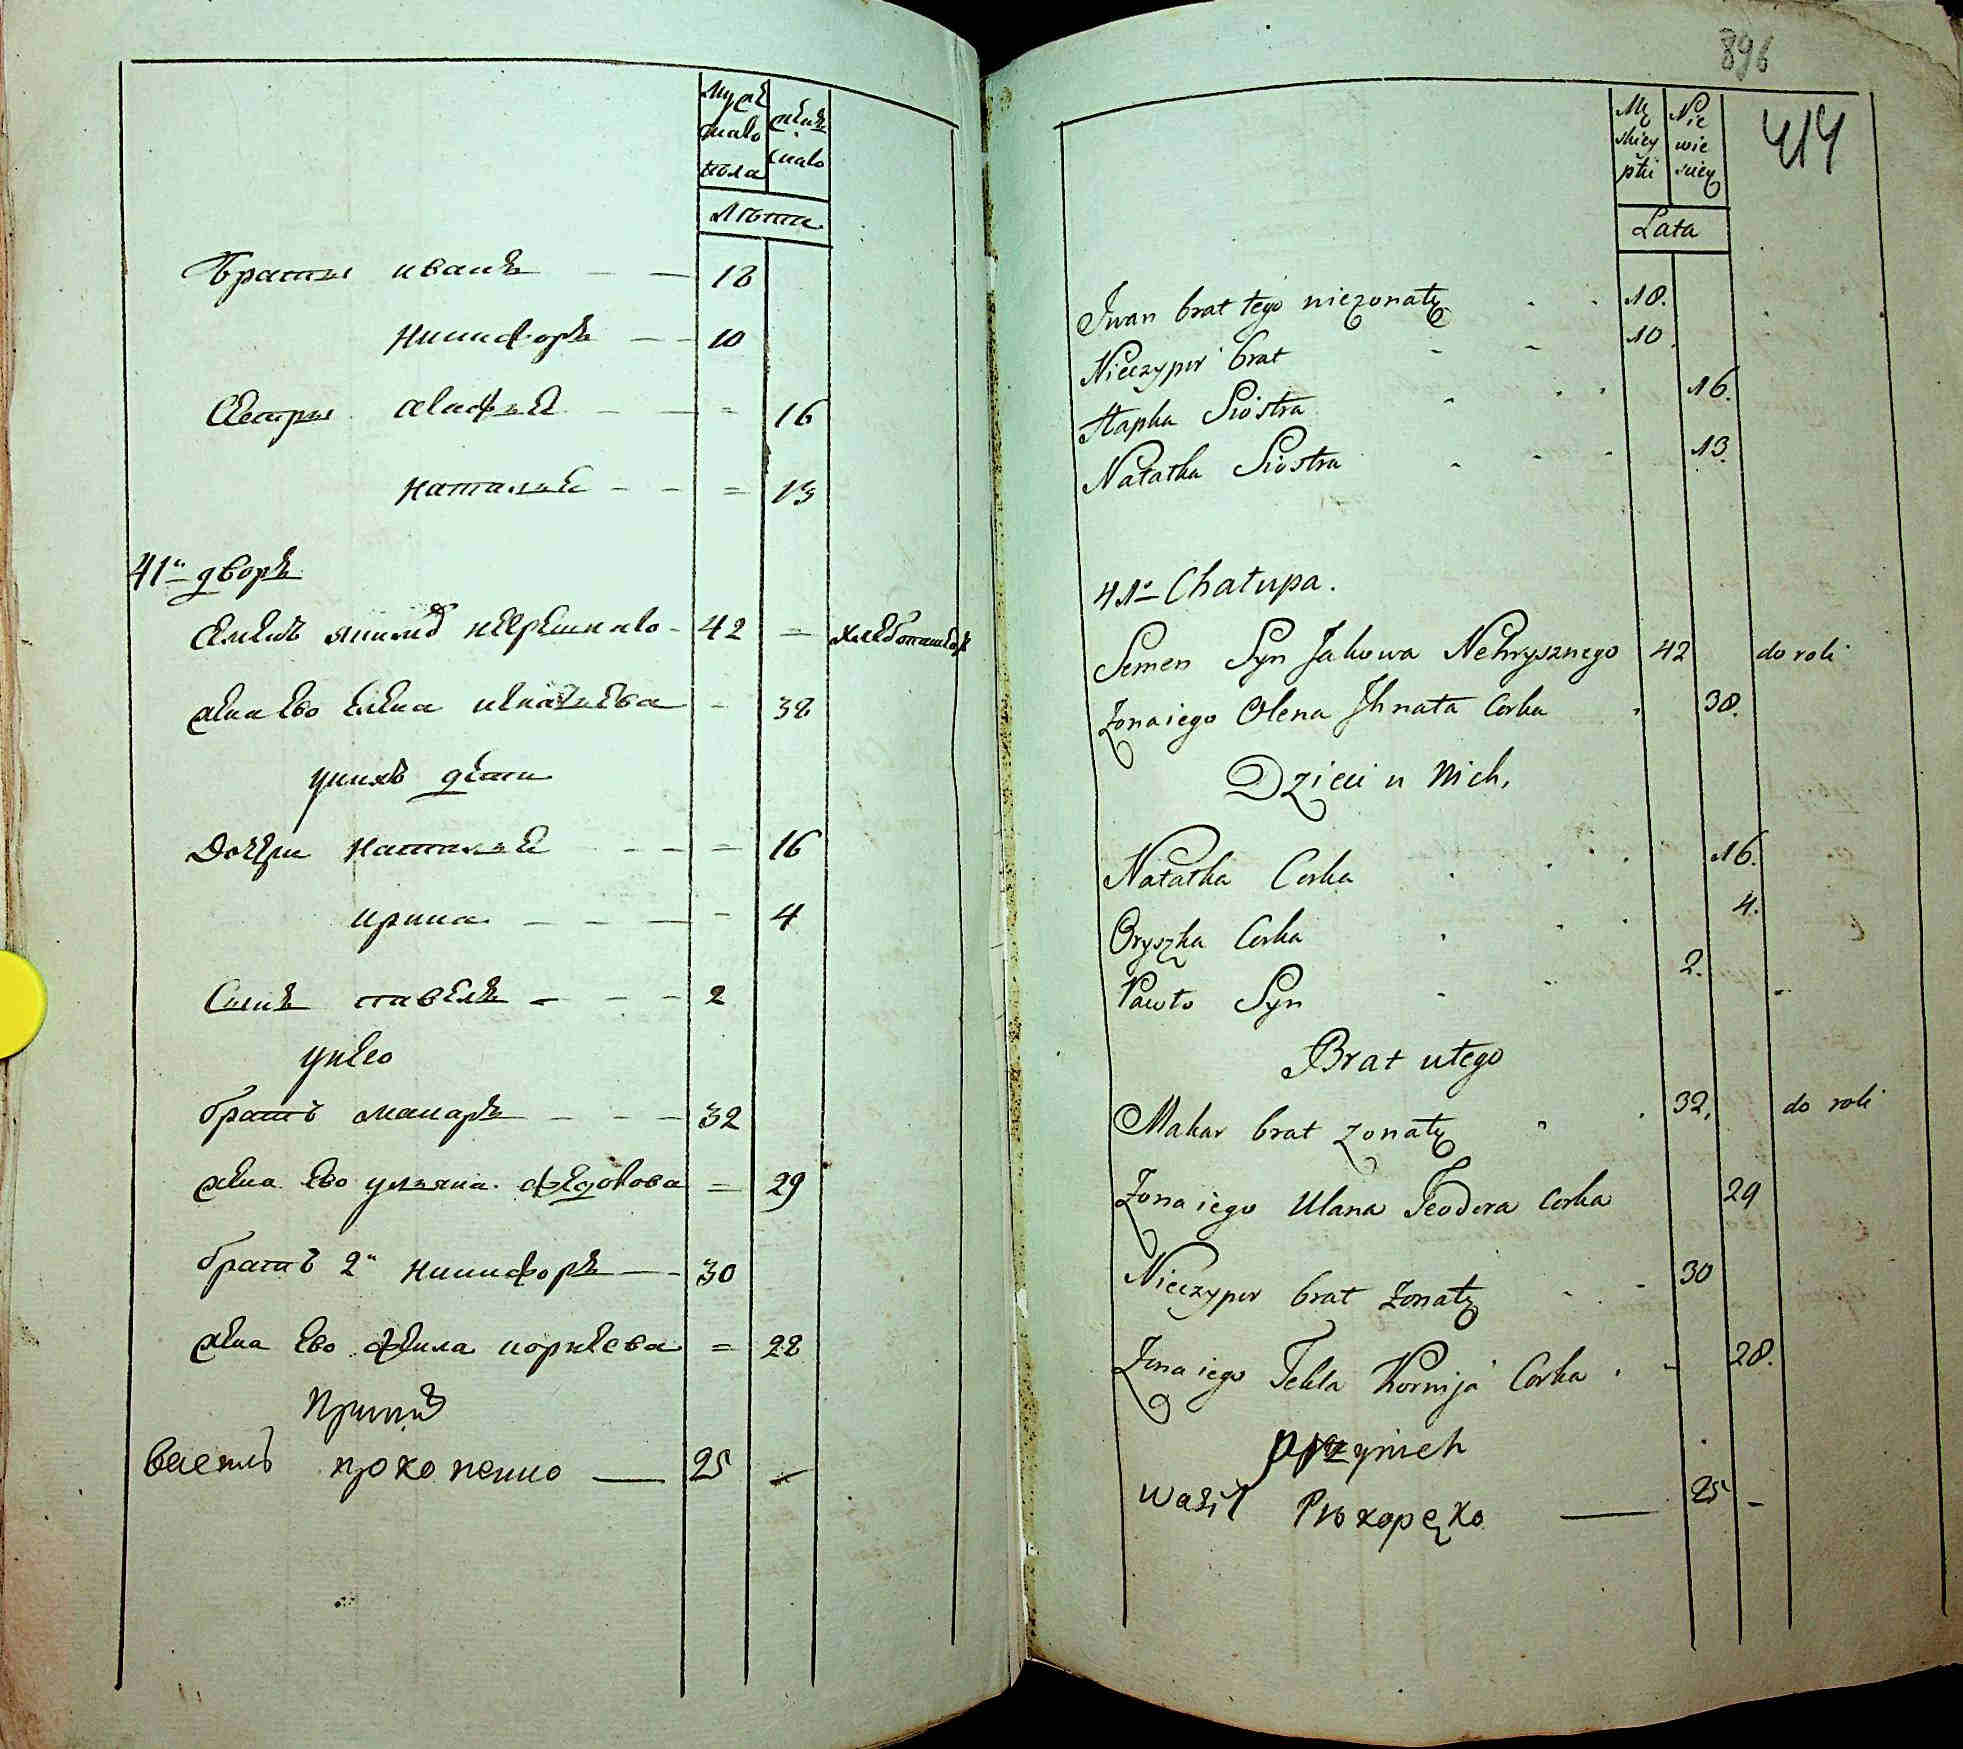 Мужскаго пола
женскаго
Лѣта
Братья иванъ — — 18
никифоръ — — 10
Сестры агафия — — = 16
наталия — — = 13
41й дворъ
семенъ якимов — 42 = хлебопашецъ
жена ево елена игнатьева — 38
у них дѣти
Дочери наталия — — = 16
ирина — — — 4
Сынъ павелъ — — — 2
у него
братъ макаръ — — — 32
жена ево ульяна федорова = 29
братъ 2й никифоръ — — 30
жена ево фекла корнеева = 28
При них
василь прокопенко — 25 —
896
414
Mę skiey płci
Nie wie sciey
Lata
Jwan brat tego nieżonaty 18.
Nieczypor brat 10.
Hapka Siostra 16.
Natałka Siostra 13.
41a Chałupa.
Semen Syn Jakowa Nehrysznego 42 do roli
Żona iego Olena Jhnata Corka 38.
Dzieci u Nich,
Natałka Corka 16.
Oryszka Corka 4.
Pawło Syn 2.
Brat u tego
Makar brat żonaty 32, do roli
Żona iego Ulana Teodora Corka 29
Nieczypor brat żonaty 30
Żona iego Tekla Kornija Corka 28.
przy nich
Wasil Prokopęko — 25 —